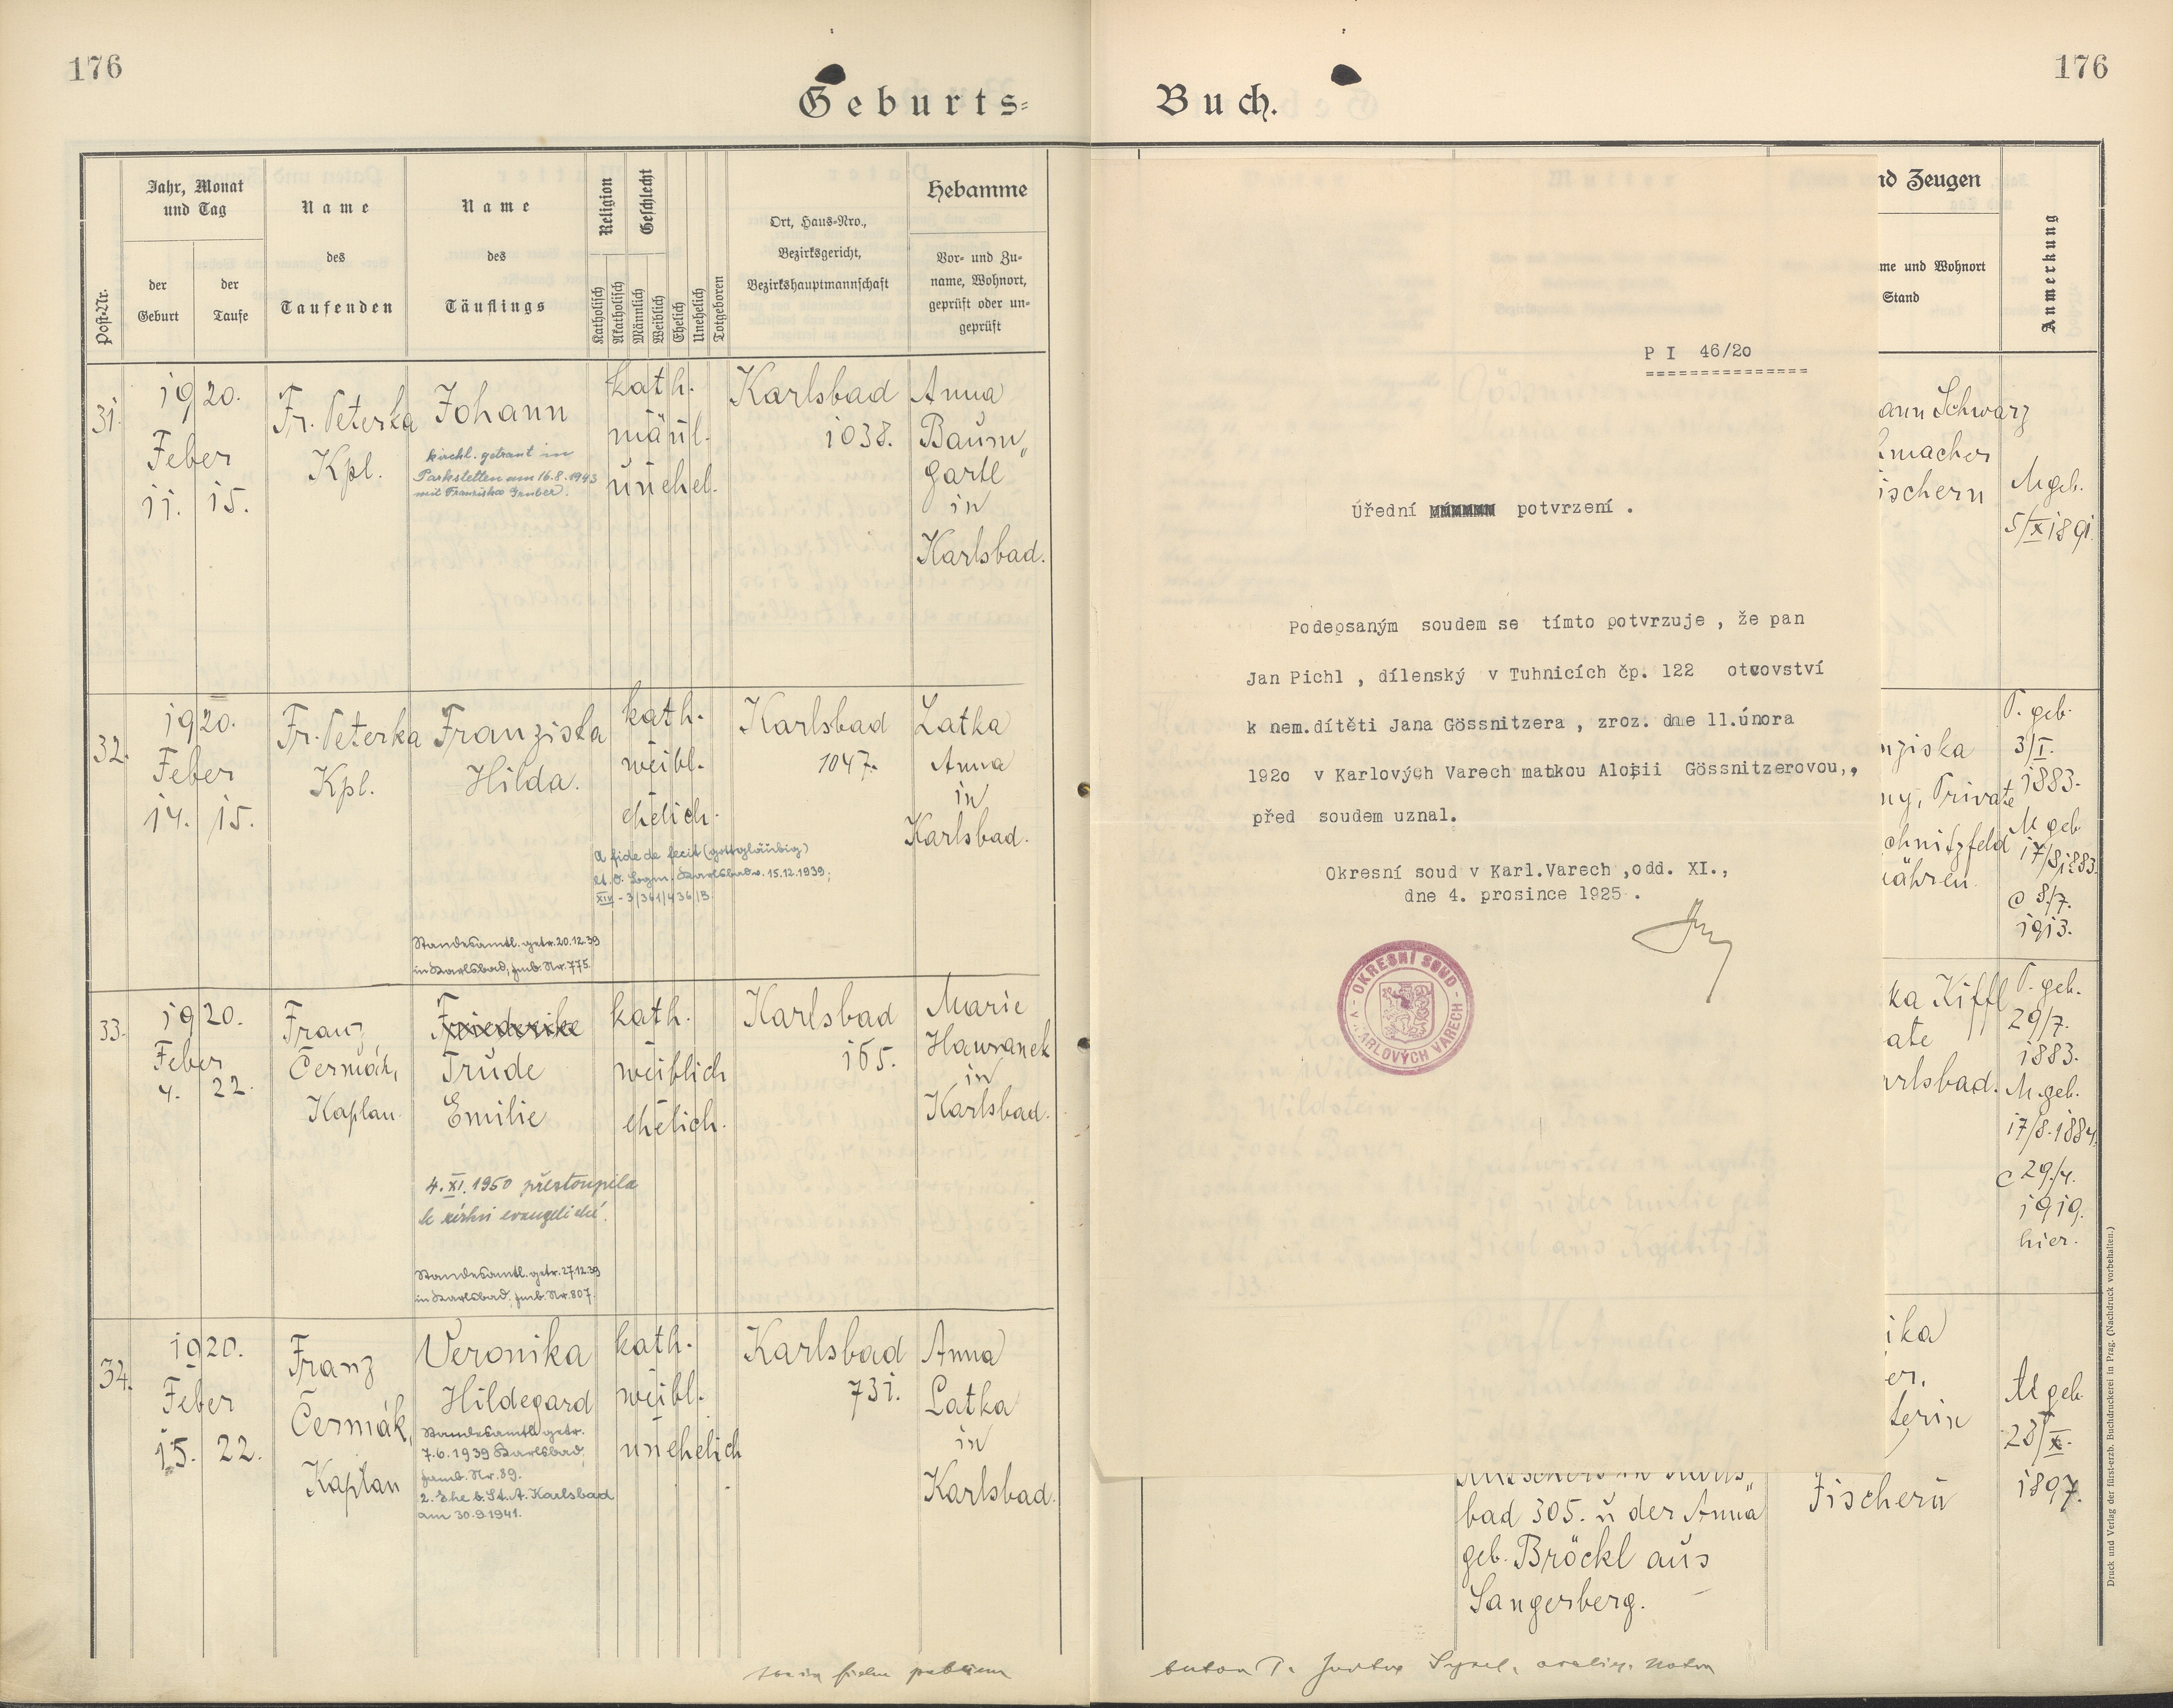 176
176
Geburts-
Buch.
Post-Nr.
Jahr, Monat
und Tag
der
Geburt
der
Taufe
Name
des
Taufenden
Name
des
Täuflings
Religion
Katholisch
Akatholisch
Geschlecht
Männlich
Weiblich
Ehelich
Unehelich
Totgeboren
Ort, Haus-Nro.,
Bezirksgericht,
Bezirkshauptmannschaft
Hebamme
Vor- und Zu-
name, Wohnort,
geprüft oder un-
geprüft
nd Zeugen
me und Wohnort
Stand
Anmerkung
31.
1920.
Feber
11. 15.
Fr. Peterka
Kpl.
Johann
kirchl. getraut in
Parkstetten am 16.8.1943
mit Franziska Gruber.
kath.
männl.
unehel.
Karlsbad
1038.
Anna
Baum„
gartl
in
Karlsbad.
ann Schwarz
macher
ischern
M geb.
5/X 1891.
32.
1920.
Feber
14. 15.
Fr. Peterka
Kpl.
Franziska
Hilda.
kath.
weibl.
ehelich.
A fide defecit (gottgläubig)
XIV - 3/361/436/B.
Standesamtl. getr. 20.12.39
in Karlsbad, Fmb. Nr. 775.
Karlsbad
1047.
Latka
Anna
in
Karlsbad.
nziska
ny, Private
chnitzfeld
ähren.
P. geb.
3/I.
1883.
M geb.
17/8 1883.
c 8/7.
1913.
33.
1920.
Feber
4. 22.
Franz
Čermák,
Kaplan.
Friederike
Trude
Emilie
4. XI. 1950 přestoupila
k církvi evangelické.
Standesamtl. getr. 27.12.39
in Karlsbad, Fmb. Nr. 807.
kath.
weiblich
ehelich.
Karlsbad
165.
Marie
Hawranek
in
Karlsbad.
ka Kiffl
ate
arlsbad.
P. geb.
29/7.
1883.
M. geb.
17/8. 1884.
c 29/4.
1919.
hier.
34.
1920.
Feber
15. 22.
Franz
Čermák,
Kaplan
Veronika
Hildegard
Standesamtl. getr.
7.6.1939 Karlsbad,
Famb. Nr. 89.
2. Ehe b. St. A. Karlsbad
am 30.9.1941.
kath.
weibl.
unehelich
Karlsbad
731.
Anna
Latka
in
Karlsbad.
ika
er,
terin
Fischern
M geb.
28/X.
1897.
bad 305. u der Anna
geb. Bröckl aus
Sangerberg.
P I 46/20
===============
Úřední potvrzení .
Podepsaným soudem se tímto potvrzuje , že pan
Jan Pichl , dílenský v Tuhnicích čp. 122 otcovství
k nem.dítěti Jana Gössnitzera , zroz. dne 11.února
1920 v Karlových Varech matkou Aloisii Gössnitzerovou,,
před soudem uznal.
Okresní soud v Karl.Varech ,odd. XI.,
dne 4. prosince 1925 .
OKRESNÍ SOUD
V KARLOVÝCH VARECH
Druck und Verlag der fürst-erzb. Buchdruckerei in Prag. (Nachdruck vorbehalten.)